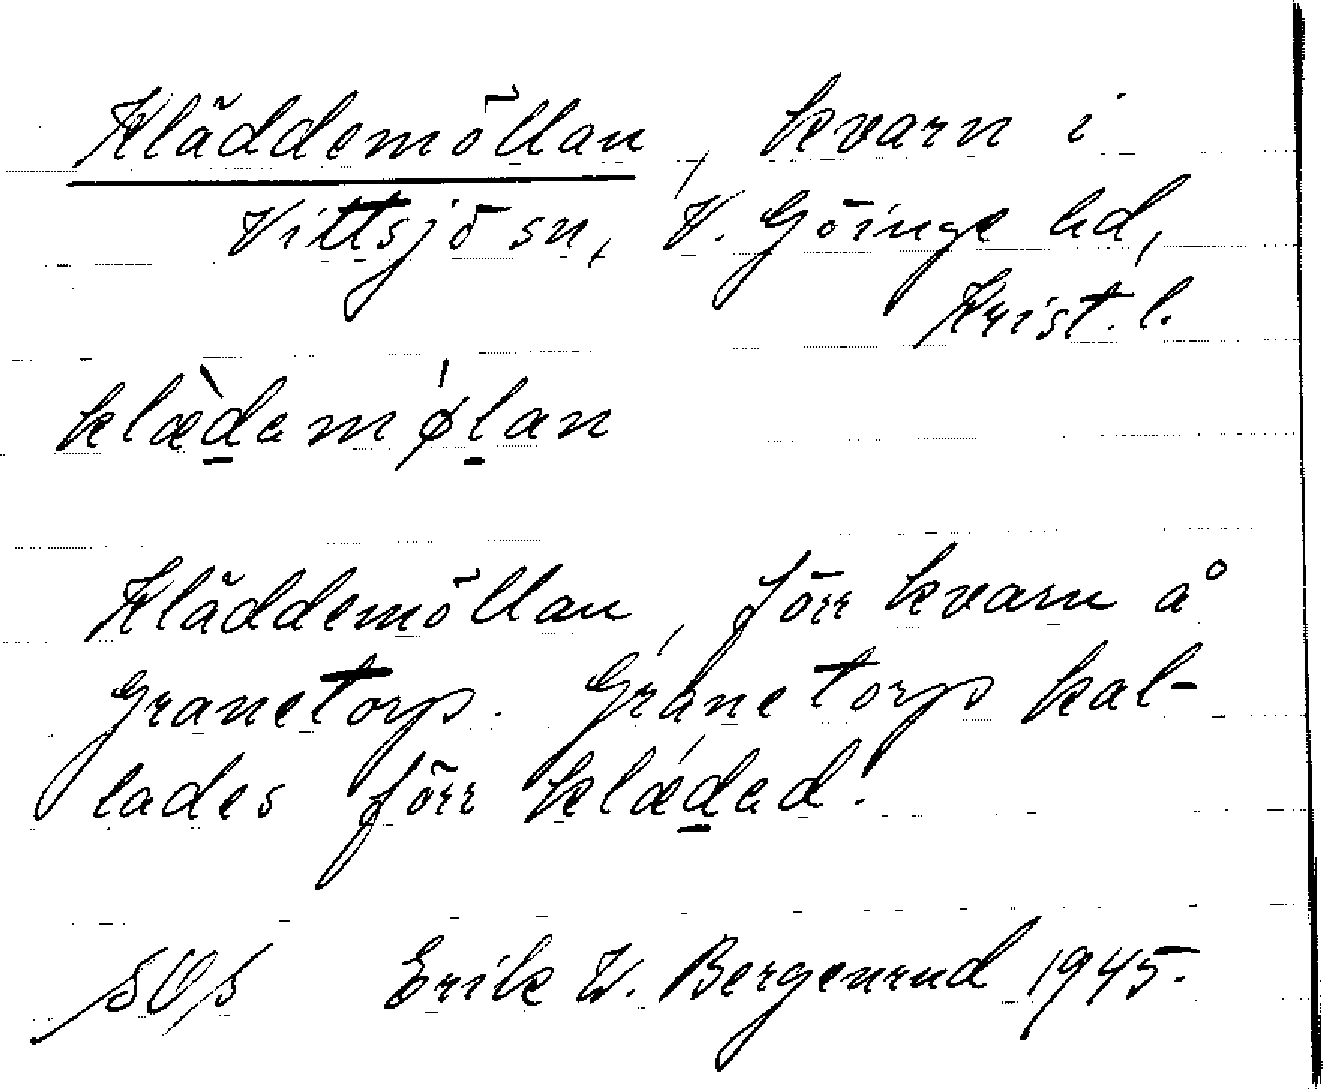 Kläddemöllan, kvarn i
Vittsjö sn, V. Göinge hd,
Krist. l.
klæ̀d̲amø̍l̲an
Kläddemöllan, förr kvarn å
Granetorp. Granetorp kal-
lades förr klæ̍d̲ad.
Erik W. Bergenrud 1945.